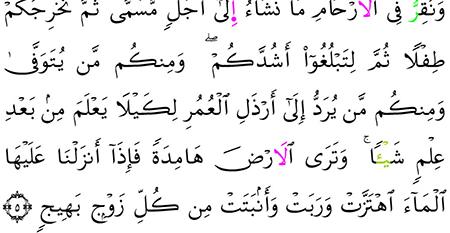 وَنُقِرُّ فِى ٱلْأَرْحَامِ مَا نَشَآءُ إِلَىٰٓ أَجَلٍ مُّسَمًّى ثُمَّ نُخْرِجُكُمْ
طِفْلًا ثُمَّ لِتَبْلُغُوٓا۟ أَشُدَّكُمْ ۖ وَمِنكُم مَّن يُتَوَفَّىٰ
وَمِنكُم مَّن يُرَدُّ إِلَىٰٓ أَرْذَلِ ٱلْعُمُرِ لِكَيْلَا يَعْلَمَ مِنۢ بَعْدِ
عِلْمٍ شَيْـًٔا ۚ وَتَرَى ٱلْأَرْضَ هَامِدَةً فَإِذَآ أَنزَلْنَا عَلَيْهَا
ٱلْمَآءَ ٱهْتَزَّتْ وَرَبَتْ وَأَنۢبَتَتْ مِن كُلِّ زَوْجٍۭ بَهِيجٍ ۝٥